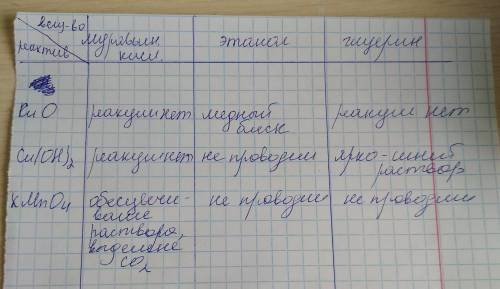 вещ-во
реактив
муравьин. кисл.
этанол
глицерин
CuO
реакции нет
медный блеск
реакции нет
Cu(OH)2
реакции нет
не проводим
ярко-синий раствор
KMnO4
обесцвечи-
вание
раствора,
выделение
CO2
не проводим
не проводим